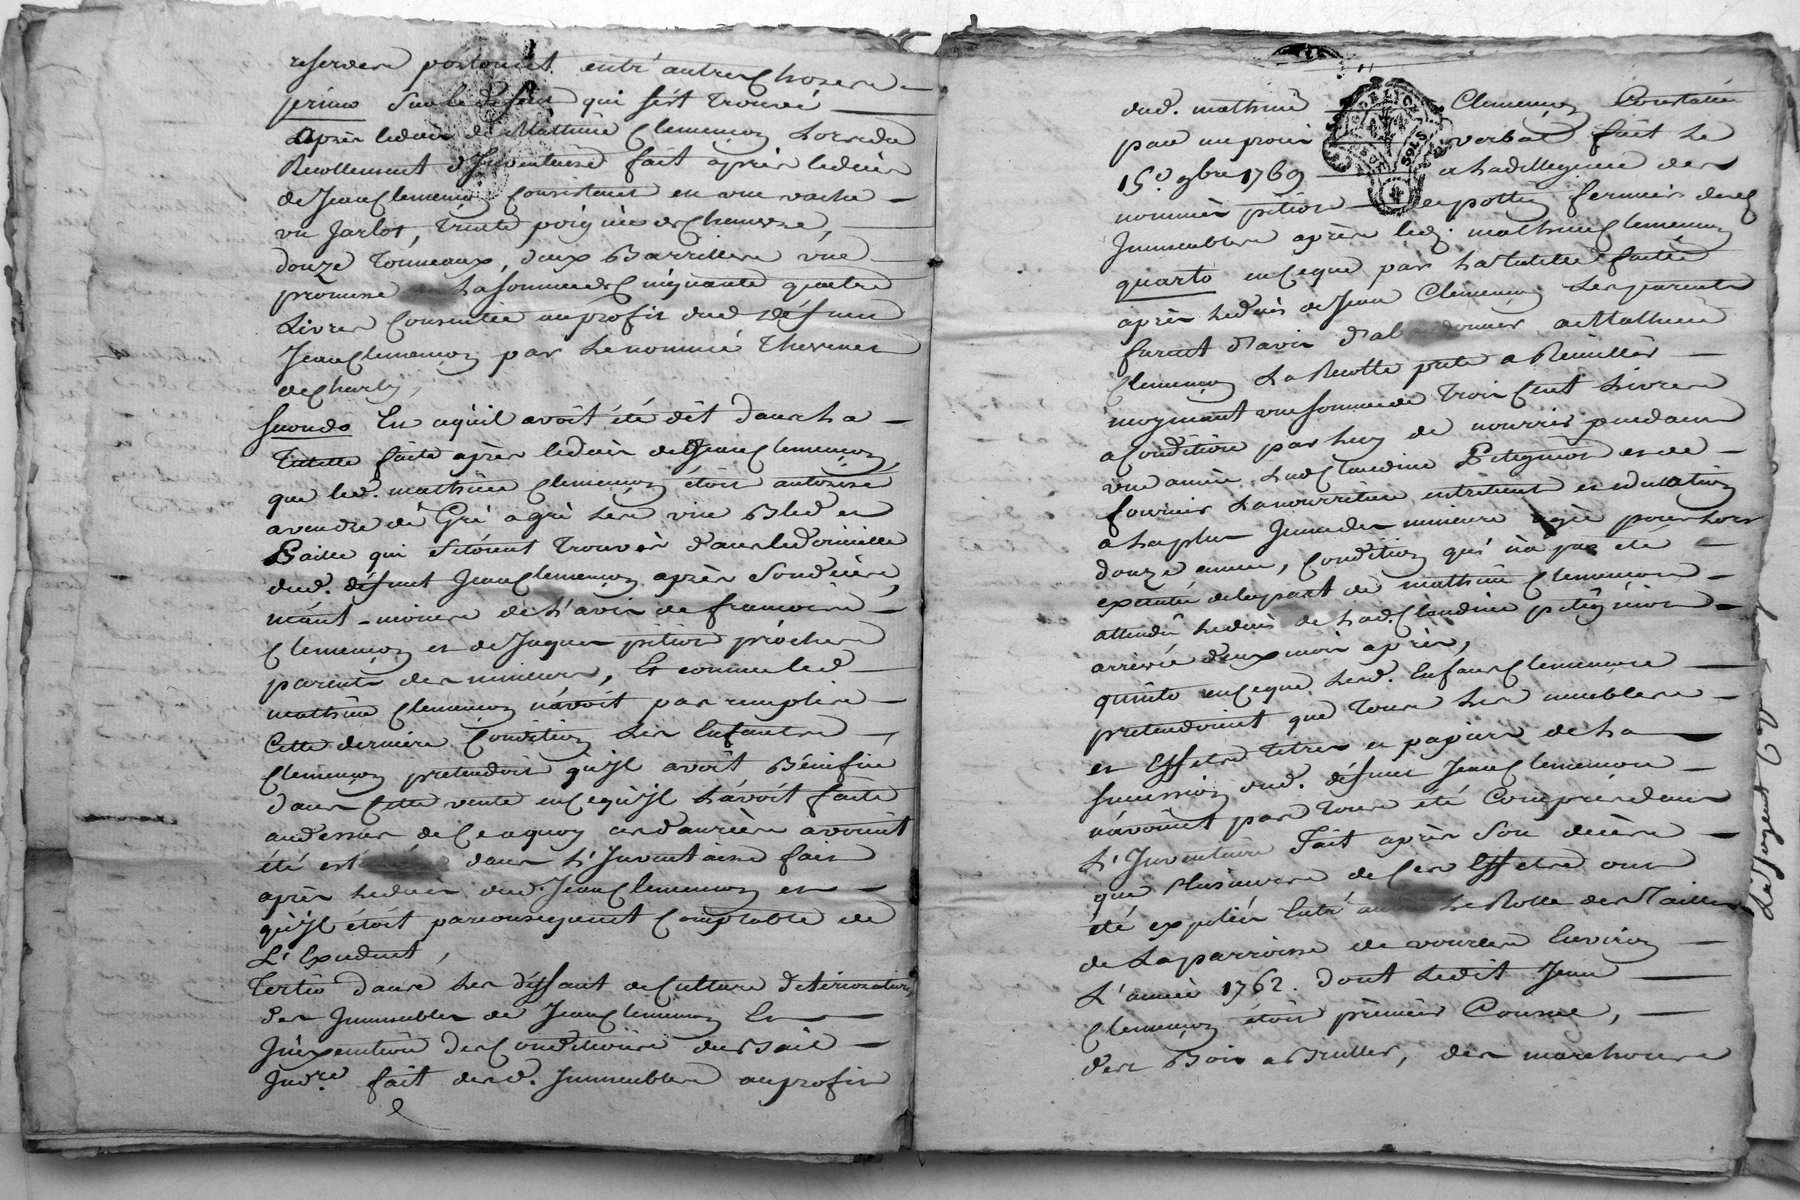 reserves portoient entr'autres choses
primo sur le deficit qui s'est trouvé
après le decès de Mathieu Clemençon lors du
Recollement d'Inventaire fait après le decès
de Jean Clemençon consistent en une vache
un Jarlot, trente poignées de Chanvre,
douze tonneaux, deux Barrilles une
promesse de la somme de Cinquante quatre
Livres Consentie au profit dud. défunt
Jean Clemençon par le nommé Thevenet
de Charly,
Secondo En ce qu'il avoit été dit dans la
Tutelle faite après le decès de Jean Clemençon
que led. mathieu Clemençon étoit autorisé
a vendre de Gré a gré les vin Bled et
Paille qui setoient trouvés dans le domicille
dud. défunt Jean Clemençon après son decès,
de l'avis de francois
Clemençon et de Jaques pition proches
parents des mineurs, Et comme led.
mathieu Clemençon n'avoit pas remplis
Cette derniere Condition les Enfants
Clemençon pretendoit qu'il avoit Bénéficié
dans Cette vente en Ce qu'il l'avoit faite
au dessus de Ce a quoy ces danrées avoient
été dans L'Inventaire fait
après le decès dud. Jean Clemençon et
qu'il étoit par consequent Comptable de
L'Exedent,
Tertio dans les déffaut de Culture déteriorations
des Immeubles de Jean Clemençon Et
Inexecution des Conditions du Bail
Jud.re fait desd. Immeubles au profit
dud. mathieu Clemençon Constatée
par un procès verbal fait le
15.e 9bre 1769 a la dilligence des
nommés pition fermiers desd.
Immeubles après led. mathieu Clemençon
quarto en Ce que par la Tutelle faite
après le decès de Jean Clemençon Les parents
furent d'avis d'abandonner a Mathieu
Clemençon La Recolte prete a Reccuillir
moyenant une somme de trois Cent Livres
a Condition par luy de nourrir pendant
une année Lad. Claudine Petignion et de
fournir La nourriture entretient et education
a la plus Jeune des mineures agée pour lors
douze années, Condition qui n'a pas été
executée de la part de mathieu Clemençon
attendu le decès de Lad. Claudine petignion
arrivée deux mois après,
quinto en Ce que Lesd. Enfants Clemençon
pretendoient que tous les meubles
et Effets titres et papiers de la
succession dud. défunt Jean Clemençon
n'avoient pas tous été Compris dans
L'Inventaire Fait après son decès
que Plusieurs de Ces Effets ont
été expiliés Entr'autres Le Rolle des Tailles
de La parroisse de vourles Environ
L'année 1762. dont Ledit Jean
Clemençon étoit prémier Consul,
des Bois a Bruller, des marchons
GEN. DE LYON
SOLS